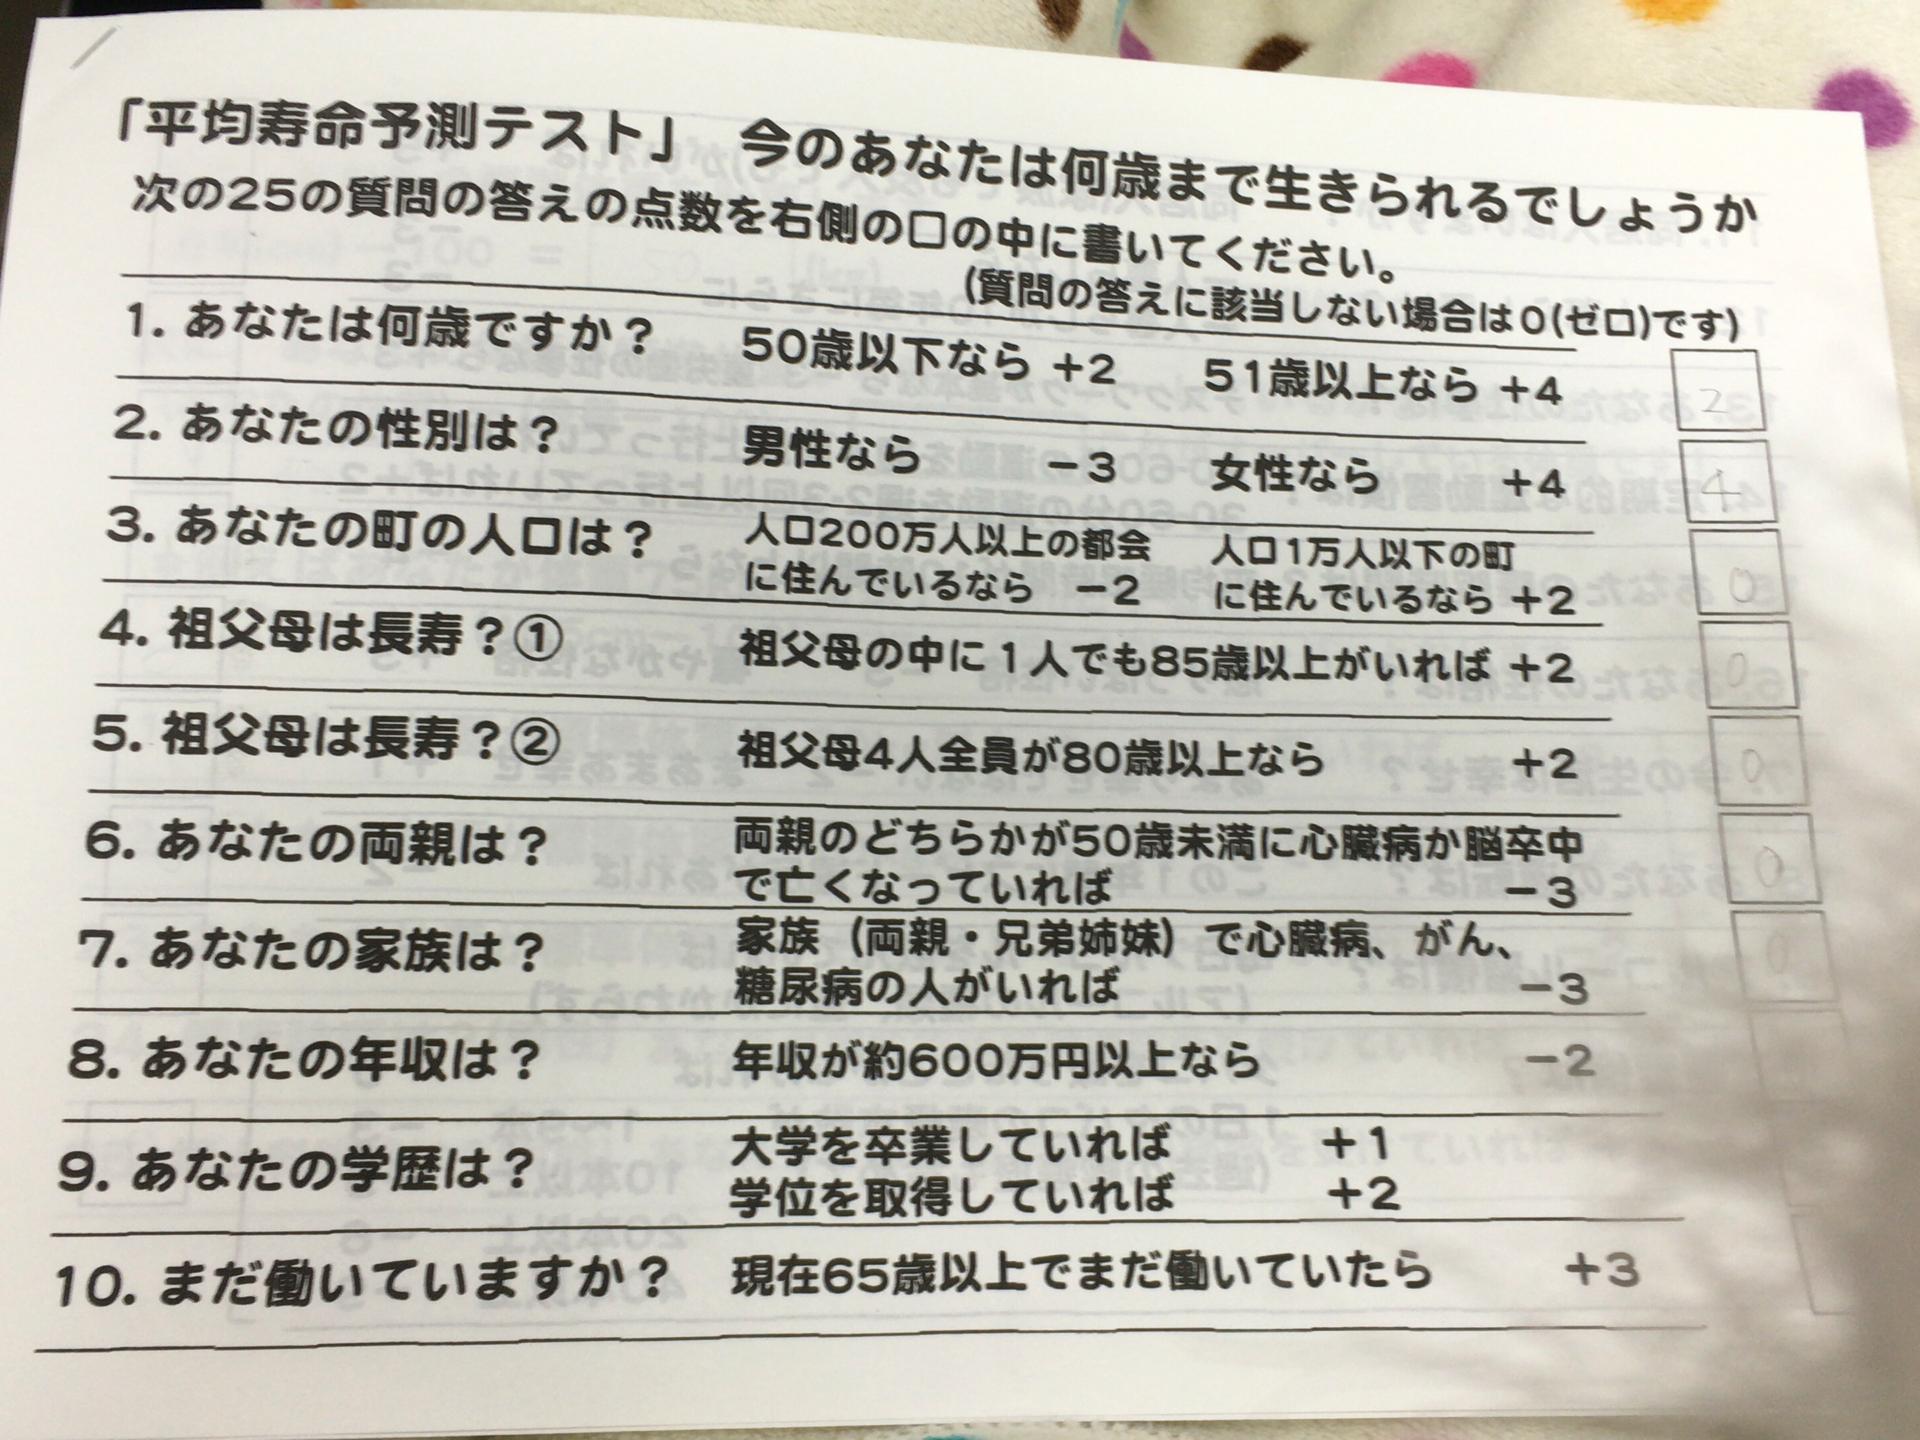 「平均寿命予測テスト」 今のあなたは何歳まで生きられるでしょうか
次の25の質問の答えの点数を右側の□の中に書いてください。
(質問の答えに該当しない場合は0(ゼロ)です)
1. あなたは何歳ですか？ 50歳以下なら +2 51歳以上なら +4 2
2. あなたの性別は？ 男性なら −3 女性なら +4 4
3. あなたの町の人口は？ 人口200万人以上の都会 人口1万人以下の町 0
に住んでいるなら −2 に住んでいるなら +2
4. 祖父母は長寿？① 祖父母の中に1人でも85歳以上がいれば +2 0
5. 祖父母は長寿？② 祖父母4人全員が80歳以上なら +2 0
6. あなたの両親は？ 両親のどちらかが50歳未満に心臓病か脳卒中 0
で亡くなっていれば −3
7. あなたの家族は？ 家族（両親・兄弟姉妹）で心臓病、がん、 0
糖尿病の人がいれば −3
8. あなたの年収は？ 年収が約600万円以上なら −2
9. あなたの学歴は？ 大学を卒業していれば +1
学位を取得していれば +2
10. まだ働いていますか？ 現在65歳以上でまだ働いていたら +3